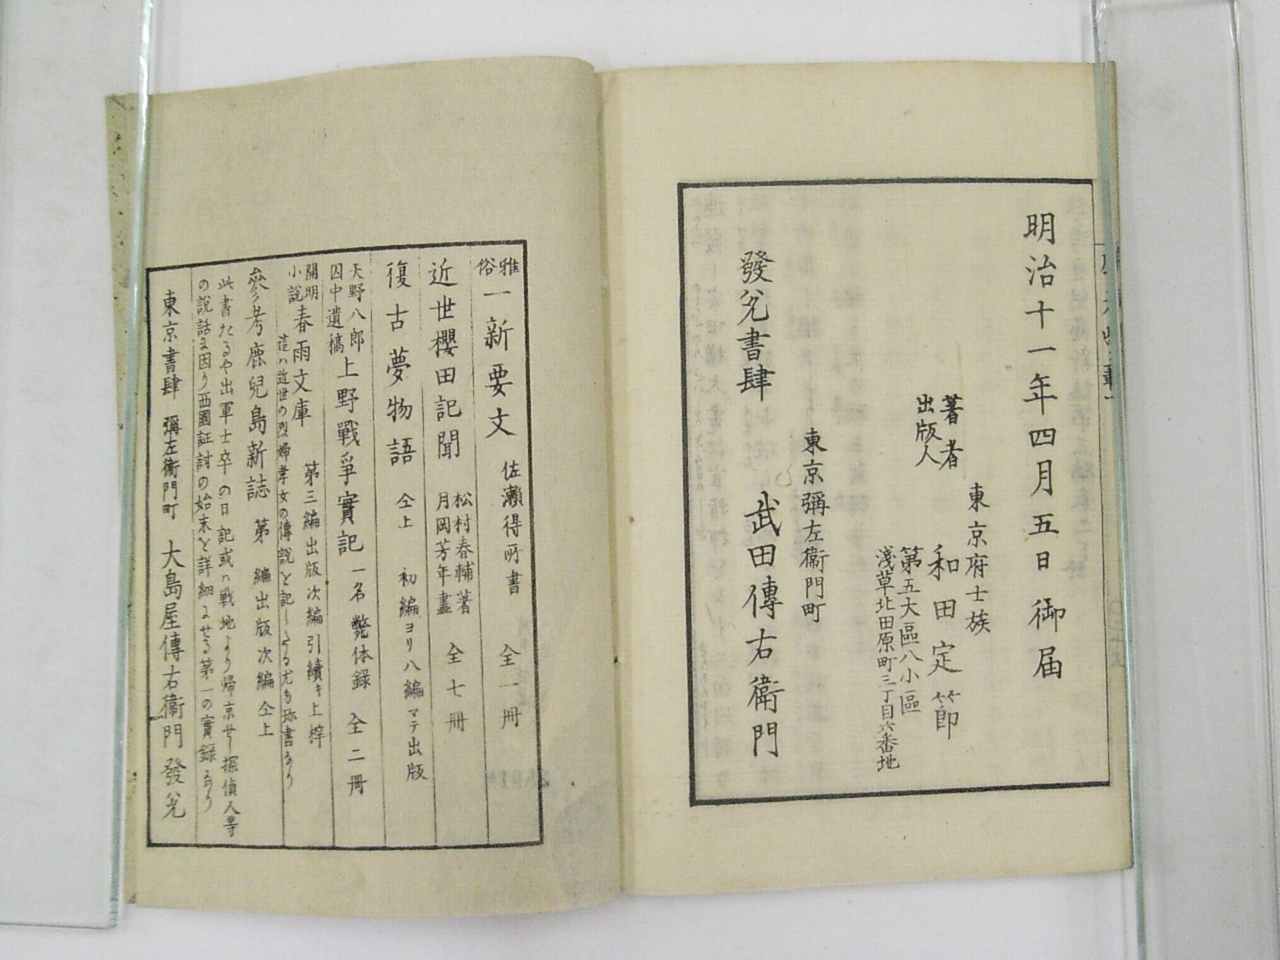 明治十一年四月五日御届
東京府士族
著者
出版人
和田定節
第五大區八小區
淺草北田原町三丁目六番地
東京彌左衞門町
發兌書肆
武田傳右衞門
雅俗
一新要文
佐瀨得所書
全一冊
近世櫻田記聞
松村春輔著
月岡芳年畫
全七冊
復古夢物語
仝上
初編ヨリ八編マデ出版
天野八郎
囚中遺稿
上野戰爭實記
一名斃休録
全二冊
開明
小説
春雨文庫
第三編出版次編引續キ上梓
這ハ近世の烈婦孝女の傳説を記したる尤も珍書なり
參考鹿兒島新誌
第 編出版次編仝上
此書たるや出軍士卒の日記或ハ戰地より帰京せし探偵人等
の説話に因り西國証討の始末を詳細よせる第一の實録なり
東京書肆
彌左衞門町
大島屋傳右衞門發兌